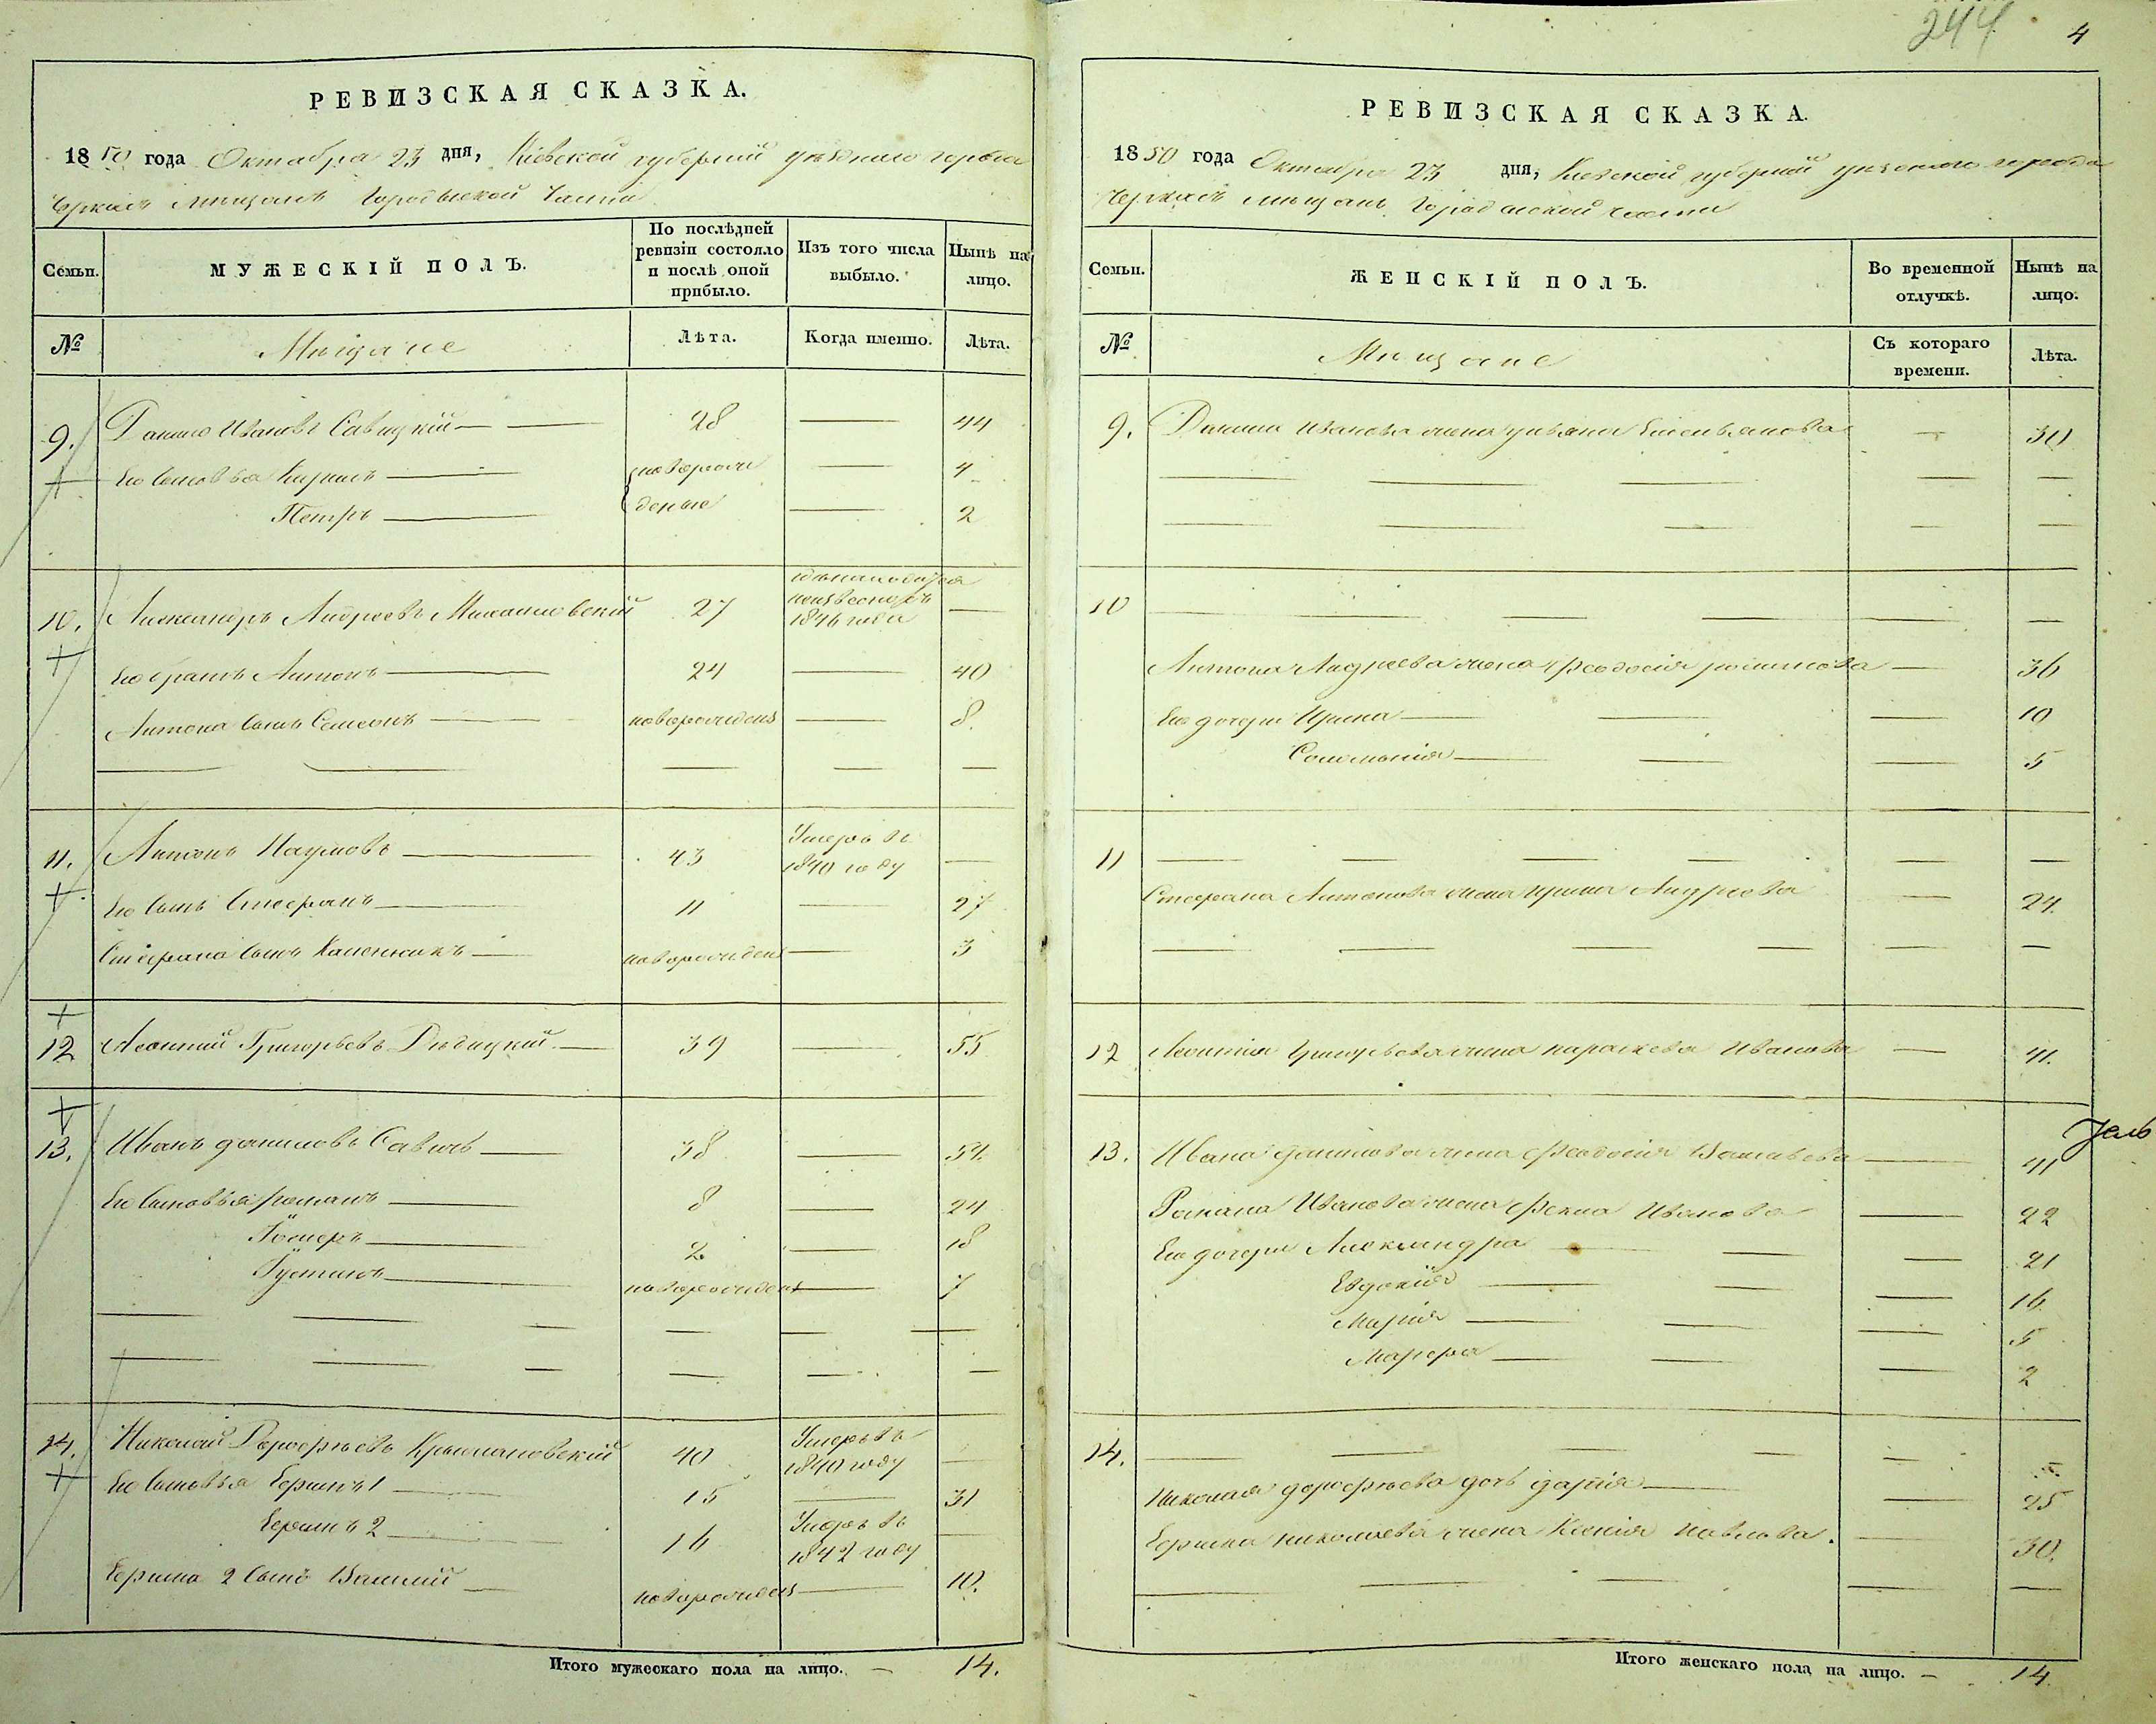 244
4
РЕВИЗСКАЯ СКАЗКА.
1850 года Октабра 23 дня, Кіевской губерніи уѣзднаго города
Черкасъ мѣщанъ Городыской Части
Семьи.
МУЖЕСКІЙ ПОЛЪ.
По послѣдней ревизіи состояло и послѣ оной прибыло.
Изъ того числа выбыло.
Нынѣ на лицо.
№
Мѣщане
Лѣта.
Когда именно.
Лѣта.
9. Данило Ивановъ Савицкій — 28 — 44
Его Сыновья Кирилъ — новорож — 4
Петръ — деные — 2
10. Александръ Андреевъ Михайловскій 27 неизвесно 1846 года —
Его братъ Антонъ — 24 — 40
Антона Сынъ Семенъ — новорожденъ — 8.
11. Антонъ Наумовъ — 43 Умеръ въ 1840 году —
Его Сынъ Стефанъ — 11 — 27
Стефана Сынъ — новорожденъ — 3
12 Леонтій Григорьевъ Дѣдицкій — 39 — 55
13. Иванъ даниловъ Савичъ — 38 — 54.
Его Сыновья романъ — 8 — 24
— 2 — 18
Густинъ — новорожденъ — 7
14. Николай Дорофѣевъ Крыжановскій 40 Умеръ въ 1840 году —
Его Сыновья Ефимъ 1 — 15 — 31
Ефимъ 2 — 16 Умеръ въ 1842 году —
Ефима 2 Сынъ Василій — новорожденъ — 10.
Итого мужескаго пола на лицо. — 14.
РЕВИЗСКАЯ СКАЗКА.
1850 года Октября 23 дня, Киевской губерніи уѣзднаго города
Черкасъ мѣщанъ Городыской части
Семьи.
ЖЕНСКІЙ ПОЛЪ.
Во временной отлучкѣ.
Нынѣ на лицо.
№
Мѣщане
Съ котораго времени.
Лѣта.
9. Данила Иванова жена ульяна Емельянова — 30
10 —
Антона Андреева жена феодосія — 36
Его дочери Ирина — 10
Соломынія — 5
11 —
Стефана Антонова жена ирина Андреева — 24.
12 Леонтія Григорьева жена параскева Иванова — 41.
13. Ивана данилова жена феодосія Васильева — 41
Романа Иванова жена фекла Иванова — 22
Его дочери Александра — 21
Евдокія — 16.
Марія — 5
Марфа — 2
14. —
Николая дорофѣева дочь дарія — 25
Ефима николаева жена Ксенія павлова. — 30.
Итого женскаго пола на лицо. — 14.